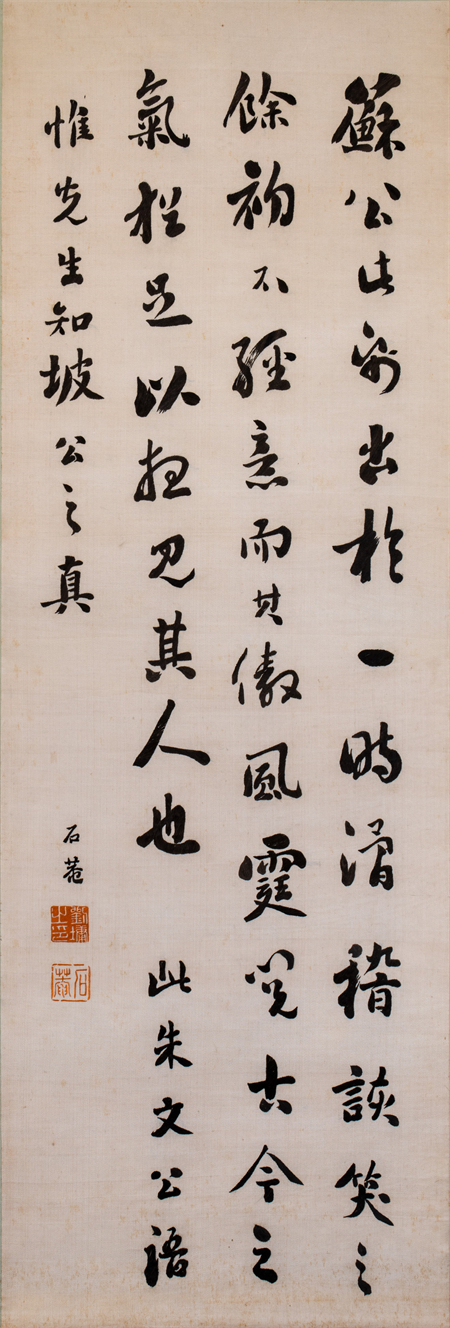 蘇公此紙出於一時滑稽詼笑之
餘初不經意而其傲風霆閱古今之
氣猶足以想見其人也 此朱文公語
惟先生知坡公之真
石菴
劉墉之印
石菴